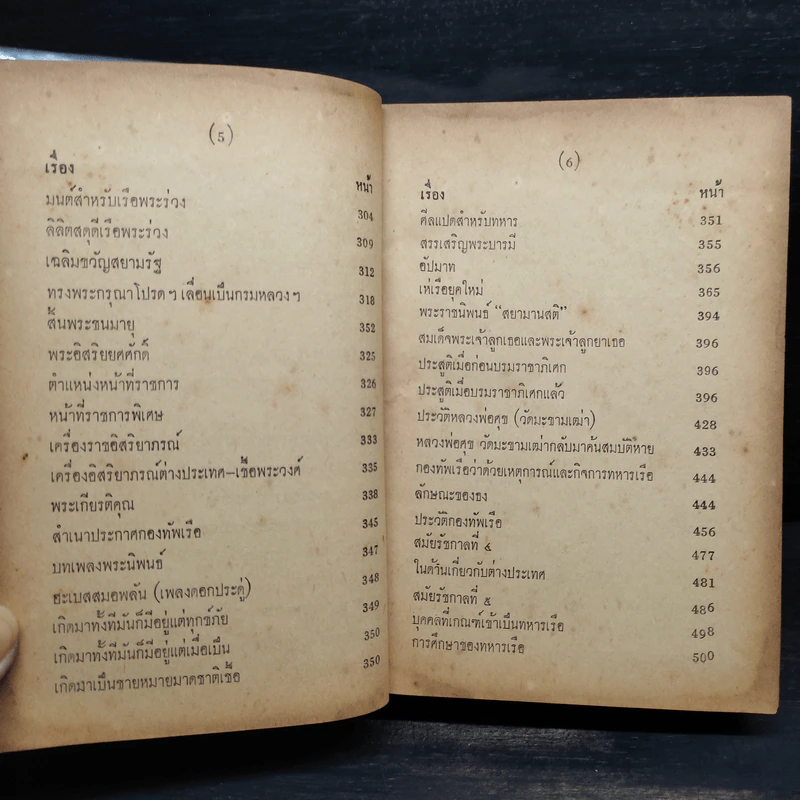 (5)
เรื่อง หน้า
มนต์สำหรับเรือพระร่วง 304
ลิลิตสดุดีเรือพระร่วง 309
เฉลิมขวัญสยามรัฐ 312
ทรงพระกรุณาโปรด ฯ เลื่อนเป็นกรมหลวง ฯ 318
สิ้นพระชนมายุ 352
พระอิสริยยศศักดิ์ 325
ตำแหน่งหน้าที่ราชการ 326
หน้าที่ราชการพิเศษ 327
เครื่องราชอิสริยาภรณ์ 333
เครื่องอิสริยาภรณ์ต่างประเทศ–เชื้อพระวงศ์ 335
พระเกียรติคุณ 338
สำเนาประกาศกองทัพเรือ 345
บทเพลงพระนิพนธ์ 347
ฮะเบสสมอพลัน (เพลงดอกประดู่) 348
เกิดมาทั้งทีมันก็มีอยู่แต่ทุกข์ภัย 349
เกิดมาทั้งทีมันก็มีอยู่แต่เมื่อเป็น 350
เกิดมาเป็นชายหมายมาดชาติเชื้อ 350
(6)
เรื่อง หน้า
ศีลแปดสำหรับทหาร 351
สรรเสริญพระบารมี 355
อัปมาท 356
เห่เรือยุคใหม่ 365
พระราชนิพนธ์ “สยามานสติ” 394
สมเด็จพระเจ้าลูกเธอและพระเจ้าลูกยาเธอ 396
ประสูติเมื่อก่อนบรมราชาภิเศก 396
ประสูติเมื่อบรมราชาภิเศกแล้ว 396
ประวัติหลวงพ่อศุข (วัดมะขามเฒ่า) 428
หลวงพ่อศุข วัดมะขามเฒ่ากลับมาค้นสมบัติหาย 433
กองทัพเรือว่าด้วยเหตุการณ์และกิจการทหารเรือ 444
ลักษณะของธง 444
ประวัติกองทัพเรือ 456
สมัยรัชกาลที่ ๔ 477
ในด้านเกี่ยวกับต่างประเทศ 481
สมัยรัชกาลที่ ๕ 486
บุคคลที่เกณฑ์เข้าเป็นทหารเรือ 498
การศึกษาของทหารเรือ 500